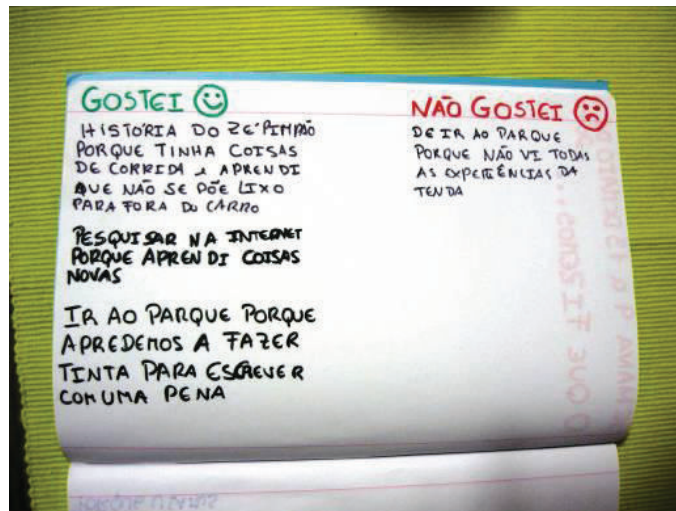 GOSTEI
HISTÓRIA DO ZÉ PIMPÃO
PORQUE TINHA COISAS
DE CORRIDA E APRENDI
QUE NÃO SE PÕE LIXO
PARA FORA DO CARRO
PESQUISAR NA INTERNET
PORQUE APRENDI COISAS
NOVAS
IR AO PARQUE PORQUE
APREDEMOS A FAZER
TINTA PARA ESCREVER
COM UMA PENA
NÃO GOSTEI
DE IR AO PARQUE
PORQUE NÃO VI TODAS
AS EXPERIÊNCIAS DA
TENDA